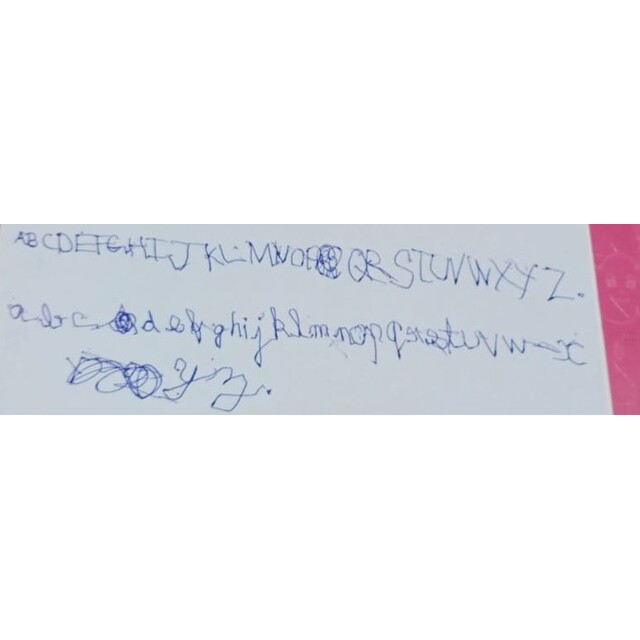 ABCDEFGHIJKLMNOPQRSTUVWXYZ.
abcdefghijklmnopqrstuvw-x
yz.